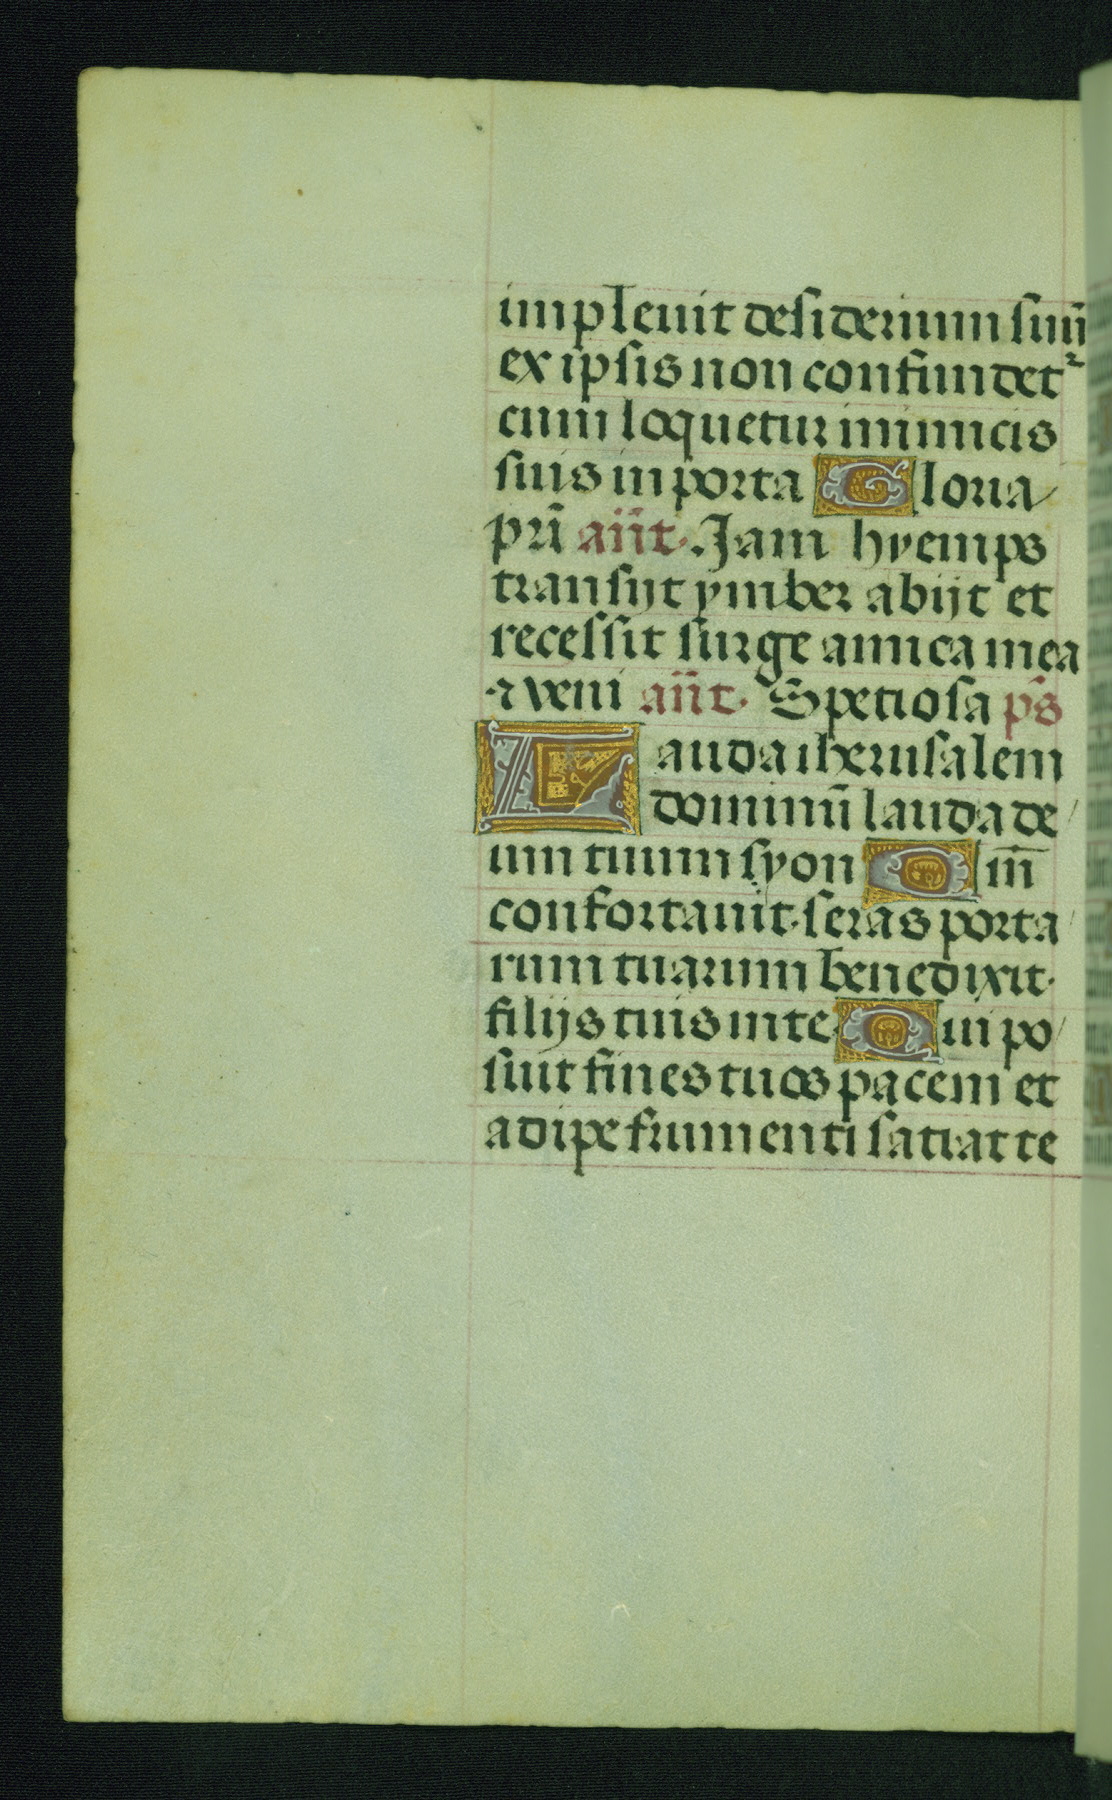 impleuit desiderium suũ
ex ipsis non confundetʳ
cum loquetur inimicis
suis in porta Gloria
pr̃i añt. Jam hyemps
transijt ymber abijt et
recessit surge amica mea
⁊ veni añt. Spetiosa ps̃
Lauda iherusalem
dominũ lauda de
um tuum syon Qm̃
confortauit seras porta
rum tuarum benedixit
filijs tuis in te Qui po
suit fines tuos pacem et
adipe frumenti satiat te